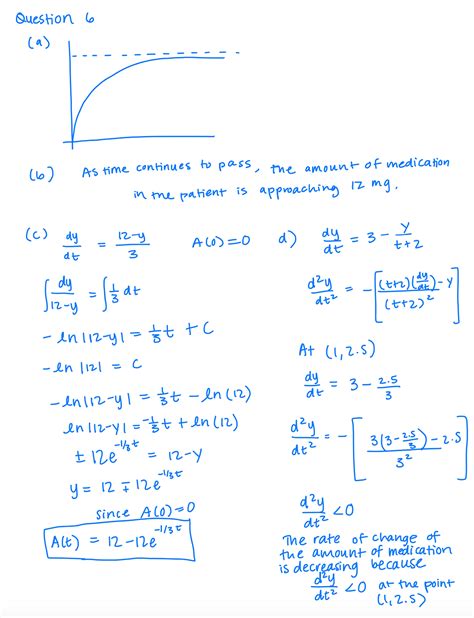 Question 6
(a)
(b) As time continues to pass, the amount of medication
in the patient is approaching 12 mg.
(c) dy/dt = 12-y/3 A(0)=0
∫ dy/12-y = ∫ 1/3 dt
- ln|12-y| = 1/3 t + C
-ln|12| = C
-ln|12-y| = 1/3 t - ln(12)
ln|12-y| = -1/3 t + ln(12)
± 12e^-1/3t = 12-y
y = 12 ∓ 12e^-1/3t
since A(0)=0
A(t) = 12-12e^-1/3t
d) dy/dt = 3 - y/t+2
d²y/dt² = -[(t+2)(dy/dt)-y/(t+2)²]
At (1,2.5)
dy/dt = 3 - 2.5/3
d²y/dt² = -[3(3-2.5/3)-2.5/3²]
d²y/dt² <0
The rate of change of
the amount of medication
is decreasing because
d²y/dt² <0 at the point
(1,2.5)